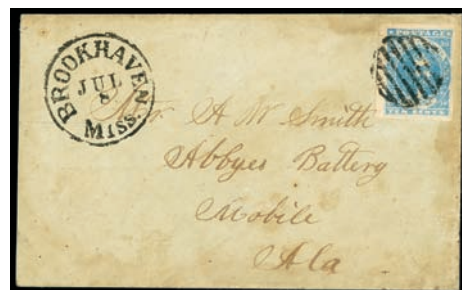 BROOKHAVEN
JUL
8
MISS.
POSTAGE
TEN CENTS
Mr. A W Smith
Abbyes Battery
Mobile
Ala